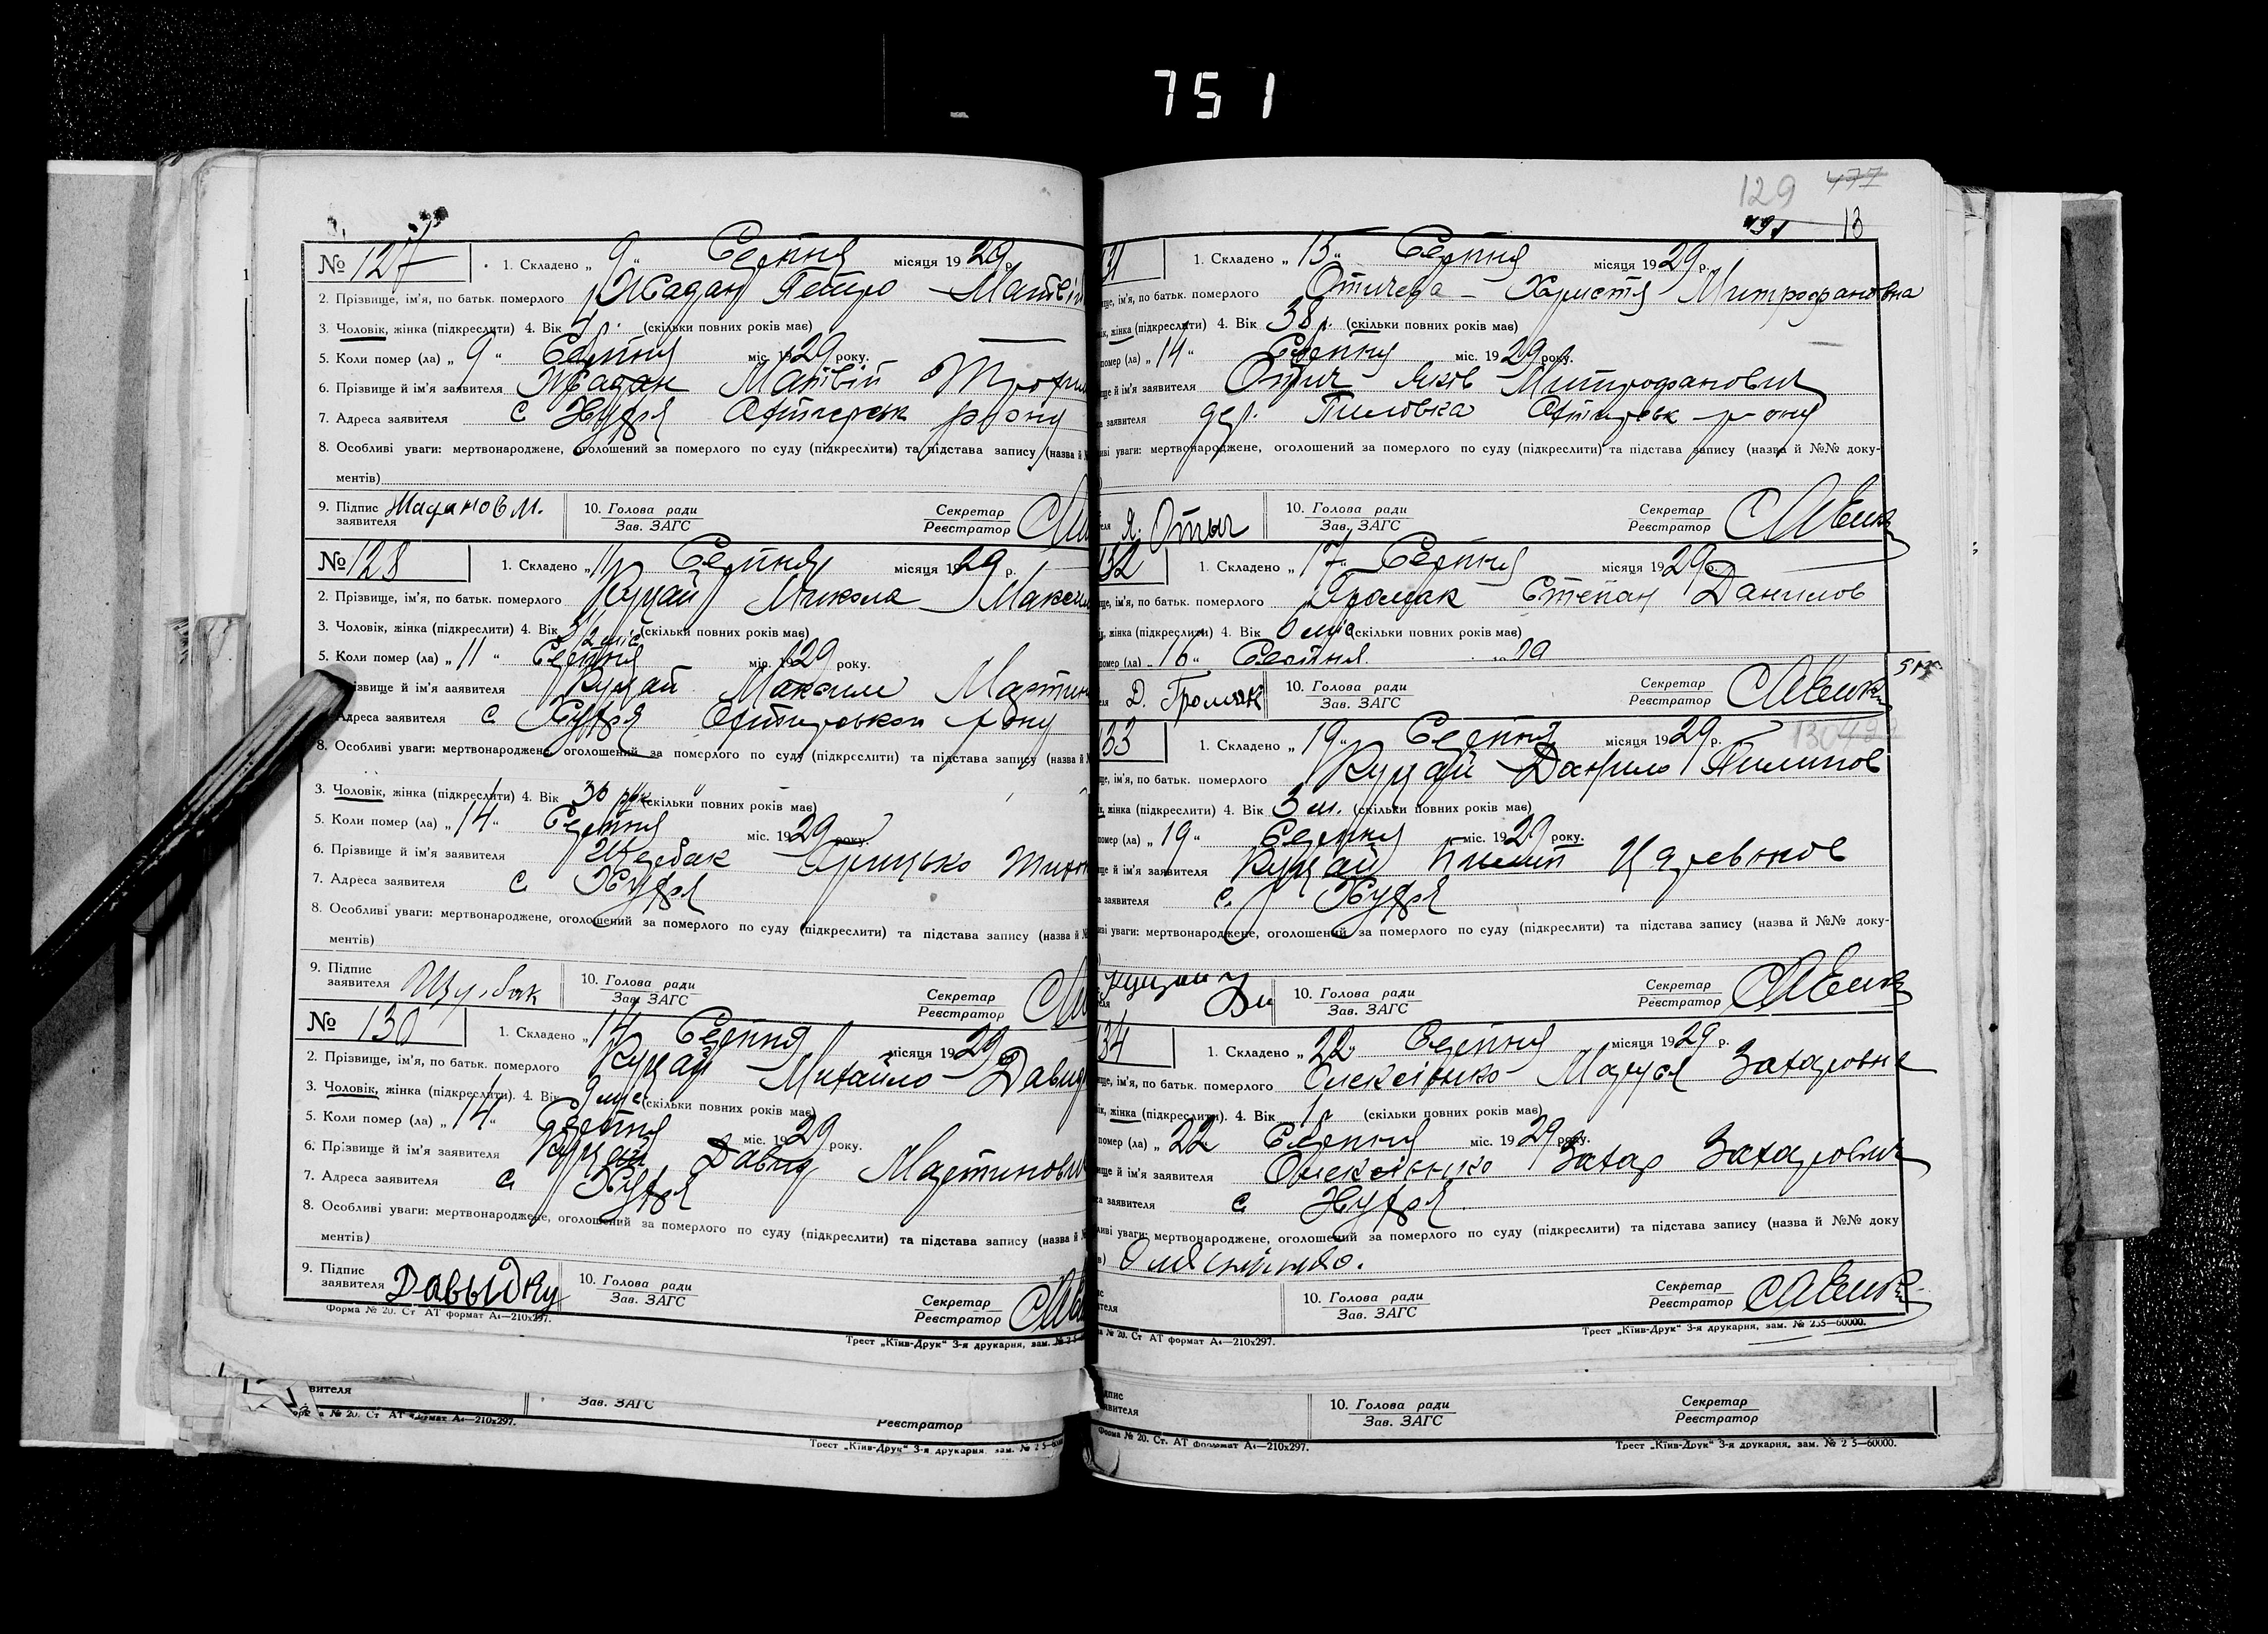 751
№ 127
1. Складено „ 9 " Серпня місяця 1929 р.
2. Прізвище, ім'я, по батьк. померлого Жадан Петро Матвій
3. Чоловік, жінка (підкреслити) 4. Вік р. (скільки повних років має)
5. Коли помер (ла) „ 9 " Серпня міс. 1929 року.
6. Прізвище й ім'я заявителя Жадан Матвій Трохим
7. Адреса заявителя с Хухря Охтирськ рону
8. Особливі уваги: мертвонароджене, оголошений за померлого по суду (підкреслити) та підстава запису (назва й
ментів)
9. Підпис заявителя
10. Голова ради Зав. ЗАГС
Секретар Реєстратор
№ 128
1. Складено „ 11 " Серпня місяця 1929 р.
2. Прізвище, ім'я, по батьк. померлого Куцай Микола Максим
3. Чоловік, жінка (підкреслити) 4. Вік міс (скільки повних років має)
5. Коли помер (ла) „ 11 " Серпня міс. 1929 року.
ізвище й ім'я заявителя Куцай Максим Мартин
Адреса заявителя с. Хухря Охтирськой рону
8. Особливі уваги: мертвонароджене, оголошений за померлого по суду (підкреслити) та підстава запису (назва й
3. Чоловік, жінка (підкреслити) 4. Вік 30 рок (скільки повних років має)
5. Коли помер (ла) „ 14 " Серпня міс. 1929 року.
6. Прізвище й ім'я заявителя Щербак Грицько
7. Адреса заявителя с Хухря
8. Особливі уваги: мертвонароджене, оголошений за померлого по суду (підкреслити) та підстава запису (назва й
ментів)
9. Підпис заявителя Щербак
10. Голова ради Зав. ЗАГС
Секретар Реєстратор
№ 130
1. Складено „ 14 " Серпня місяця 1929
2. Прізвище, ім'я, по батьк. померлого Куцай Михайло Давид
3. Чоловік, жінка (підкреслити). 4. Вік 9 міс (скільки повних років має)
5. Коли помер (ла) „ 14 " Серпня міс. 1929 року.
6. Прізвище й ім'я заявителя Куцай Давид Мартинович
7. Адреса заявителя с. Хухря
8. Особливі уваги: мертвонароджене, оголошений за померлого по суду (підкреслити) та підстава запису (назва й
ментів)
9. Підпис заявителя Давыдку
10. Голова ради Зав. ЗАГС
Секретар Реєстратор
Форма № 20. Ст АТ формат А4—210х297.
Трест „Київ-Друк" 3-я друкарня, зам.
вителя
Зав. ЗАГС
Реєстратор
№ 20. Ст АТ формат А4—210х297.
Трест „Київ-Друк" 3-я друкарня, зам.
129 477
13
31
1. Складено „ 15 " Серпня місяця 1929 р.
ще, ім'я, по батьк. померлого Отичева - Христя Митрофановна
ік, жінка (підкреслити) 4. Вік 38 р. (скільки повних років має)
помер (ла) „ 14 " Серпня міс. 1929 року.
ще й ім'я заявителя Отич Яків Митрофанович
а заявителя дер. Пиловка Охтирськ р-ону
иві уваги: мертвонароджене, оголошений за померлого по суду (підкреслити) та підстава запису (назва й №№ доку-
Я. Отыч
10. Голова ради Зав. ЗАГС
Секретар Реєстратор
32
1. Складено „ 17 " Серпня місяця 1929 р.
ще, ім'я, по батьк. померлого Громак Степан Данилов
жінка (підкреслити) 4. Вік міс (скільки повних років має)
помер (ла) „ 16 " Серпня 29
Д. Громяк
10. Голова ради Зав. ЗАГС
Секретар Реєстратор
33
1. Складено „ 19 " Серпня місяця 1929 р.
130
ще, ім'я, по батьк. померлого Куцай Данило Пилипов
жінка (підкреслити) 4. Вік 3 м. (скільки повних років має)
помер (ла) „ 19 " Серпня міс. 1929 року.
ще й ім'я заявителя Куцай Пилип
а заявителя с. Хухря
иві уваги: мертвонароджене, оголошений за померлого по суду (підкреслити) та підстава запису (назва й №№ доку-
10. Голова ради Зав. ЗАГС
Секретар Реєстратор
34
1. Складено „ 22 " Серпня місяця 1929 р.
ще, ім'я, по батьк. померлого Олексієнко Маруся Захаровна
ік, жінка (підкреслити). 4. Вік 1 р (скільки повних років має)
помер (ла) „ 22 " Серпня міс. 1929 року.
ще й ім'я заявителя Олексієнко Захар Захарович
са заявителя с Хухря
иві уваги: мертвонароджене, оголошений за померлого по суду (підкреслити) та підстава запису (назва й №№ доку
10. Голова ради Зав. ЗАГС
Секретар Реєстратор
№ 20. Ст АТ формат А4—210х297.
Трест „Київ-Друк" 3-я друкарня, зам. № 235—60000.
дпис
явителя
10. Голова ради Зав. ЗАГС
Секретар Реєстратор
Форма № 20. Ст. АТ формат А4—210х297.
Трест „Київ-Друк" 3-я друкарня, зам. № 2 5—60000.